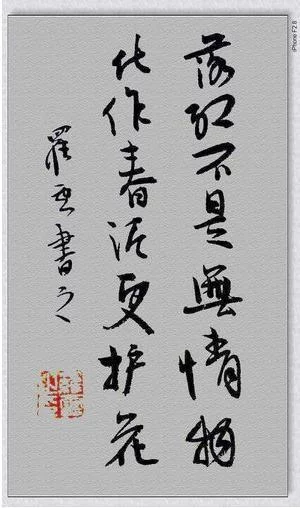 落红不是無情物
化作春泥更护花
羅亚書之
iPhone F2.8